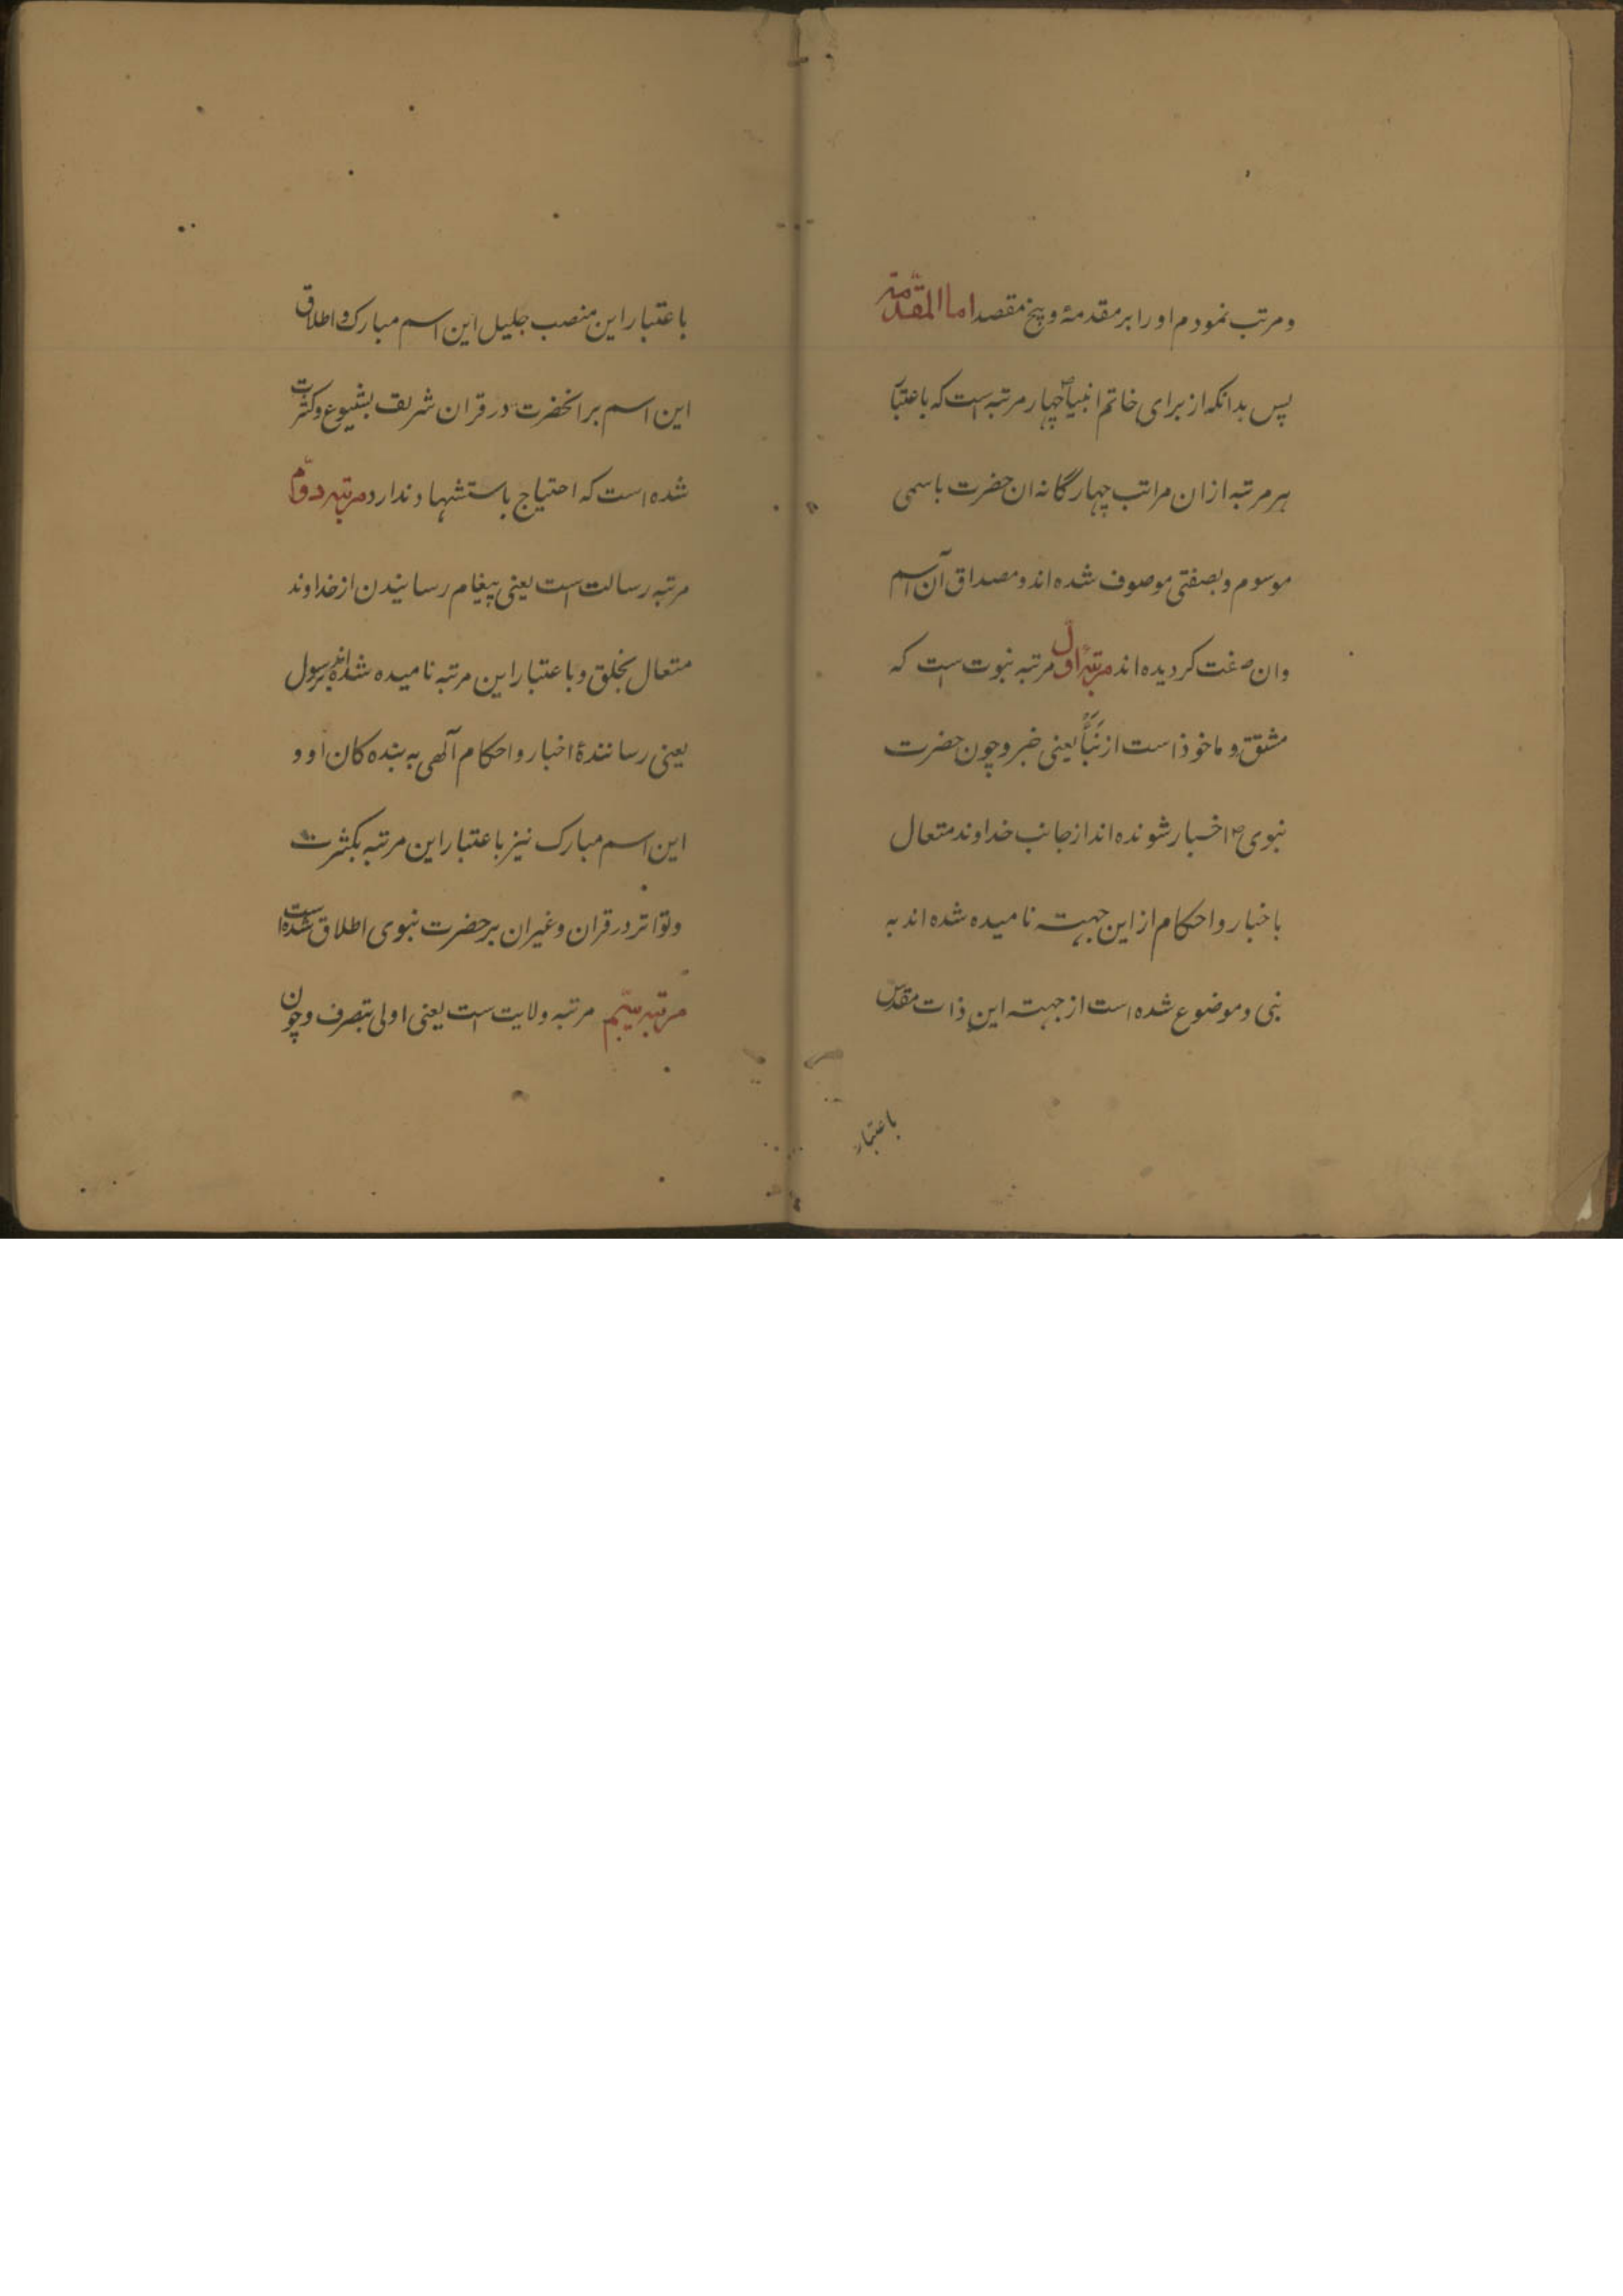 ومرتب نمودم اورا بر مقدمهٔ وپنج مقصد اما المقدّمة
پس بدانکه از برای خاتم انبیا ص چهار مرتبه است که باعتبا
هر مرتبه ازان مراتب چهارگانه ان حضرت باسمی
موسوم وبصفتی موصوف شده اند ومصداق آن اسم
وان صفت کردیده اند مرتبهٔ اوّل مرتبه نبوت است که
مشتق و ماخوذ است از نَبَأٌ یعنی خبر وچون حضرت
نبوی ص اخبار شونده اند از جانب خداوند متعال
باخبار واحکام از این جهت نامیده شده اند به
نبی وموضوع شده است از جهت این ذات مقدّس
باعتبار
باعتبار این منصب جلیل این اسم مبارک واطلاق
این اسم بر انحضرت در قران شریف بشیوع وکثرت
شده است که احتیاج باستشهاد ندارد مرتبه دوّم
مرتبه رسالت است یعنی پیغام رسانیدن از خداوند
متعال بخلق وباعتبار این مرتبه نامیده شده اند برسول
یعنی رسانندهٔ اخبار واحکام آلهی به بنده کان او و
این اسم مبارک نیز باعتبار این مرتبه بکثرت
وتواتر در قران وغیر ان بر حضرت نبوی اطلاق شده است
مرتبه سیّم مرتبه ولایت است یعنی اولی بتصرف وچون